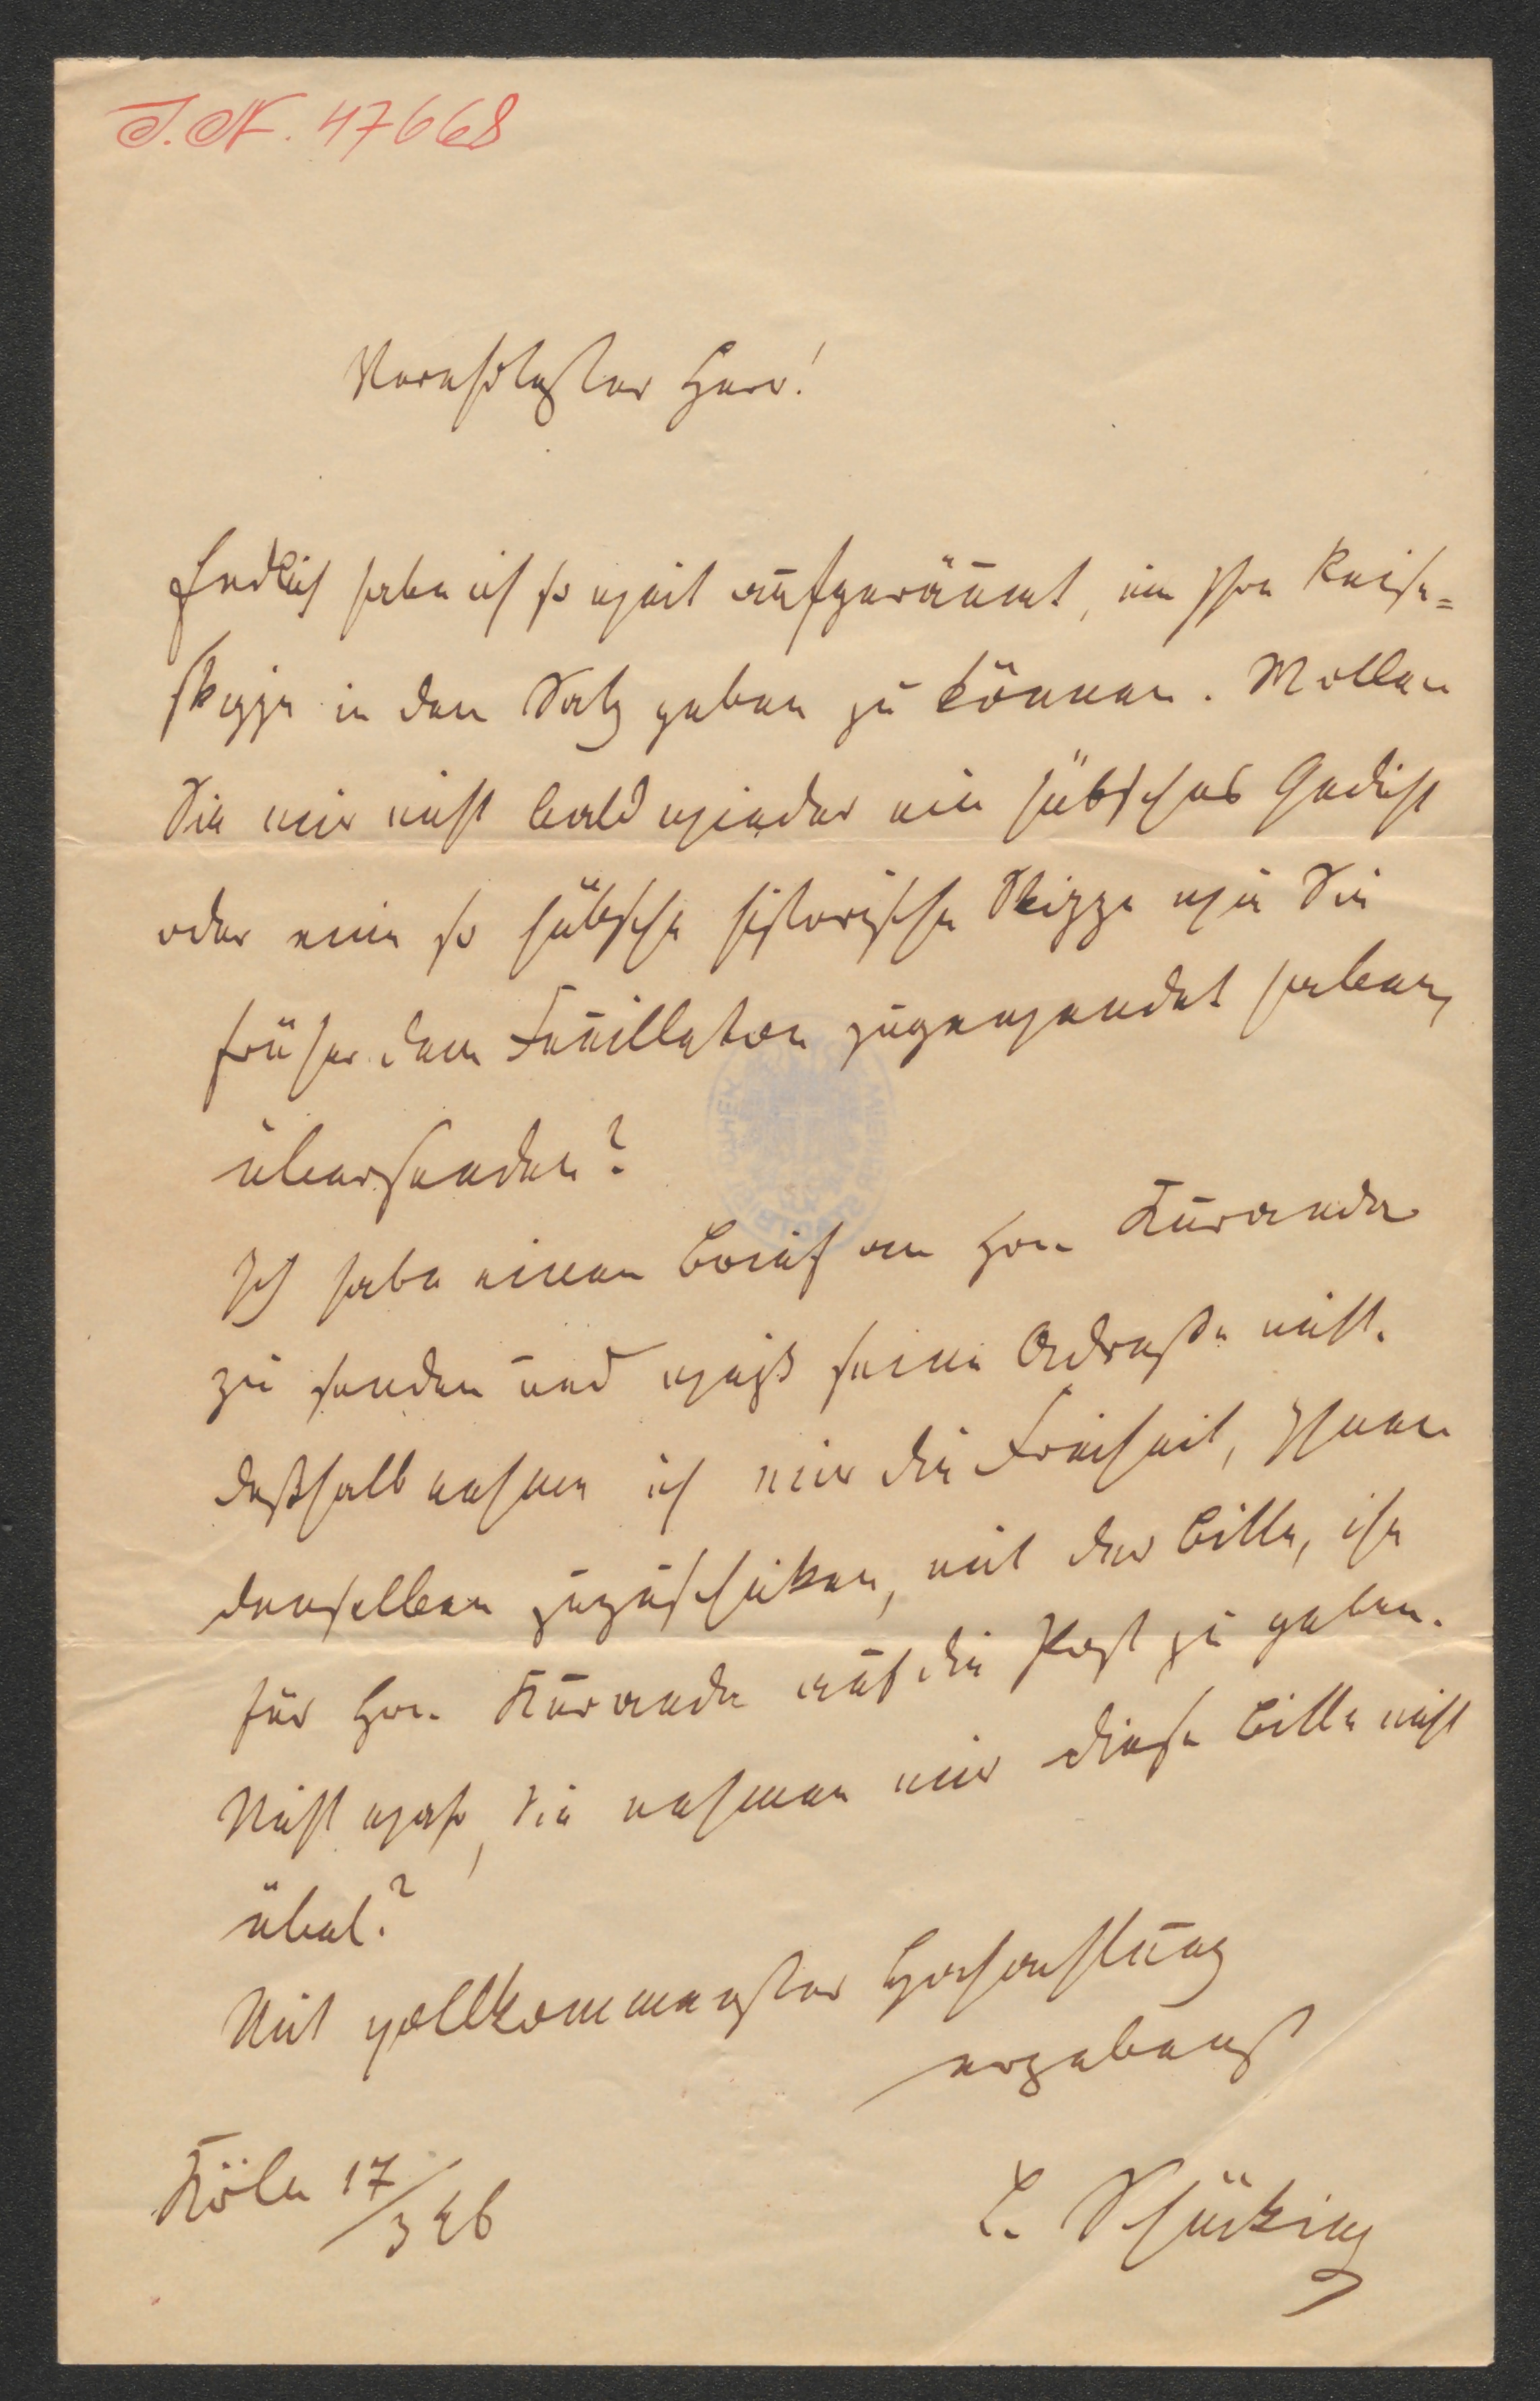 I.N. 47668
Verehrtester Herr!
Endlich habe ich so weit aufgeräumt, um Ihre Reise=
skizze in den Satz geben zu können. Wollen
Sie mir nicht bald wieder ein hübsches Gedicht
oder eine so hübsche historische Skizze wie Sie
früher dem Feuilleton zugewendet haben,
übersenden?
Ich habe einen Brief an Hrn Kuranda
zu senden und weiß seine Adresse nicht.
deßhalb nehme ich mir die Freiheit, Ihnen
denselben zuzuschicken, mit der Bitte, ihn
für Hrn. Kuranda auf die Post zu geben.
Nicht wahr, Sie nehmen mir diese Bitte nicht
übel?
Mit vollkommenster Hochachtung
ergebenst
Köln 17/3 46
L. Schücking